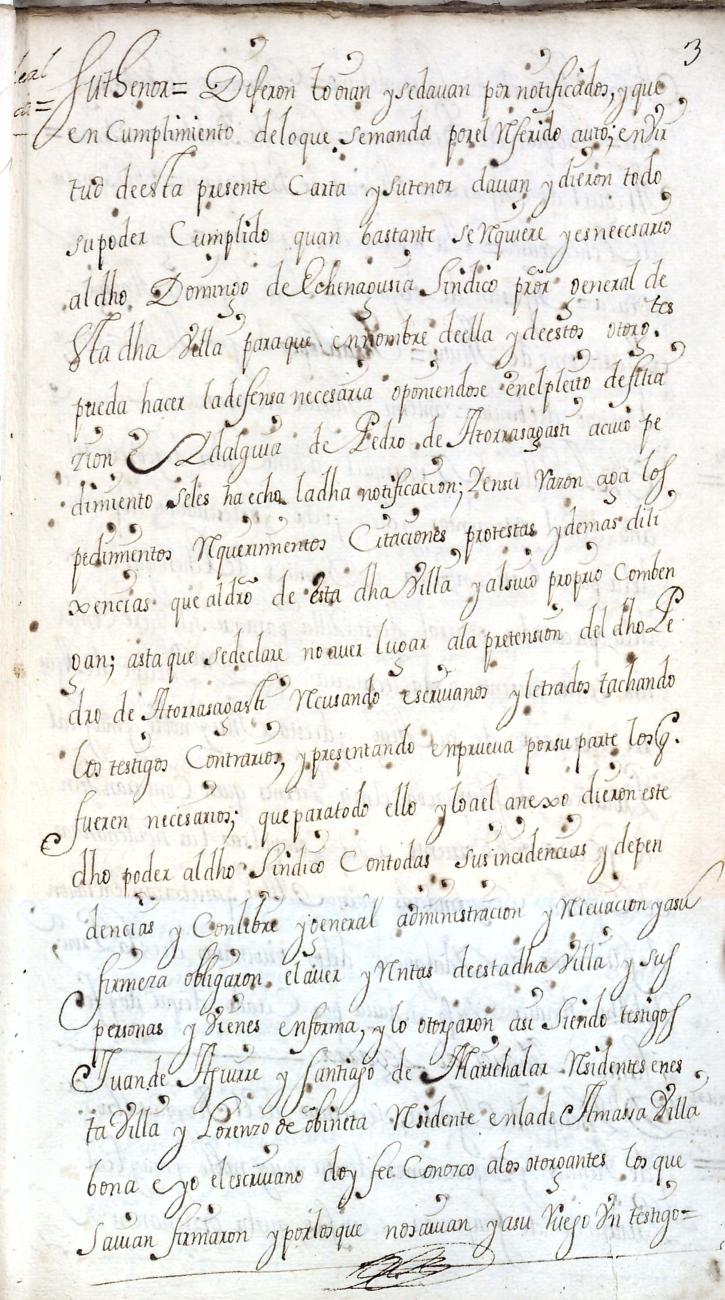 3
su thenor= Dijeron lo oian y sedauan por notificados, y que
en Cumplimiento deloque semanda porel Referido auto; en vir
tud deesta presente Carta y sutenor dauan y dieron todo
supoder Cumplido quan bastante seRequiere y esnecesario
al dho Domingo de Echenagusia Sindico prõr general de
esta dha Villa paraque en nombre deella y deestos otorg.tes
pueda hacer ladefensa necesaria oponiendose enelpleito de filia
zion e Hidalguia de Pedro de Atorrasagasti acuio pe
dimiento seles ha echo ladha notificacion; Zensu Razon aga los
pedimientos Requerimientos Citaciones protestas y demas dili
xencias que aldrõ de esta dha Villa y alsuio proprio Comben
gan; asta que sedeclare no aver lugar ala pretension del dho Pe
dro de Atorrasagasti Recusando escriuanos y letrados tachando
los testigos Contrarios, y presentando enprueva porsu parte losq.
fueren necesarios; que paratodo ello y loael anexo dieron este
dho poder aldho Sindico Contodas susincidencias y depen
dencias y Conlibre y general administracion y Relevacion y asu
firmeza obligaron elaver y Rentas deestadha Villa y sus
personas y vienes enforma, y lo otorgaron asi Siendo testigos
Juande Aguirre y Santiago de Marichalar Residentes enes
ta Villa y Lorenzo de obineta Residente enlade Amassa Villa
bona e yo elescriuano doy fee Conozco alos otorgantes los que
sauian firmaron y porlosque nosauian y asu Ruego Un testigo=